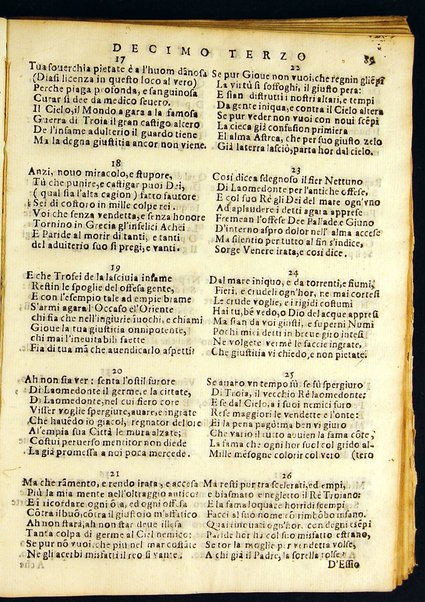 DECIMO TERZO
89
17
Tua souerchia pietate è a l'huom dãnosa
(Diasi licenza in questo loco al vero)
Perche piaga profonda, e sanguinosa
Curar si dee da medico seuero.
Il Cielo, il Mondo a gara a la famosa
Guerra di Troia il gran castigo altero
De l'infame adulterio il guardo tiene
Ma la degna giustitia ancor non viene.
18
Anzi, nouo miracolo, e stupore,
Tù che punire, e castigar puoi Dei,
( qual sia l'alta cagion ) fatto fautore
Sei di costoro in mille colpe rei.
Voi che senza vendetta, e senza honore
Tornino in Grecia gl'infelici Achei
E Paride al morir di tanti, e tanti
del adulterio suo si pregi, e vanti.
19
E che Trofei de la lasciuia infame
Restin le spoglie del offesa gente,
E con l'essempio tale ad empie brame
S'armi agara l'Occaso e l'Oriente
chi fia nell'ingiurie inuochi, e chiami
Gioue la tua giustitia onnipotente,
chi mai l'ineuitabili saette
Fia di tua mã che auendicarlo aspetti?
20
Ah non sia ver: senta l'ostil furore
Di Laomedonte il germe, e la cittate,
Di Laomedonte, nel cui fiero core
Visser voglie spergiure, auare, e ingrate
Chè hauẽdo io giacol, regnator del'ore
Al'empia sua Città le mura alzate;
Costui peruerso mentitor non diede
La già promessa a noi poca mercede.
21
Ma che rãmento, e rendo irata, e accesa
Più la mia mente nell'oltraggio antico:
Ei ricordare ogni õta, ed ogni offesa
Cõtra il buõ, cõtra il giusto io m'affatico
Ah non starà, ah non star deue illesa
Tanta colpa di germe al Ciel nemico:
Se pur nõ vuoi, che più nel mar costãte
Ne gli acerbi misfatti il reo si vante.
22
Se pur Gioue non vuoi, che regnin gliẽpi
La virtù si soffoghi, il giusto pera:
E sian distrutti i nostri altari, e tempi
Da gente iniqua, e contra il Cielo altera
Se pur veder non vuoi con noui scẽpi
La cieca già confusion primiera
El alma Astrea, che per suo giusto zelo
Già laterra lasciò, parta hor dal cielo.
23
Cosi dicea sdegnoso il fier Nettuno
Di Laomedonte per l'antiche offese,
E col suo Rè gl i Dei del mare ogn'vno
Ad aplaudere i detti a gara apprese
Fremean l'offese Dee Pallade e Giuno
D'interno aspro dolor nell'alma accese
Ma silentio per tutto al fin s'indice,
Sorge Venere irata, e cosi dice.
24
Dal mare iniquo, e da torrenti, e fiumi,
Fieri, e crudeli ogn'hor, ne mai cortesi
Le crude voglie, ei rigidi costumi
Hai tu, bẽ vedo, o Dio del acque appresi
Ma sian da voi giusti, e superni Numi
Pochi miei detti in breue giro intesi
Ne volgere vermè le faccie ingrate,
Che giustitia vi chiedo, e non pietate.
25
Se auaro vn tempo fù: se fù spergiuro
Di Troia, il vecchio Rè laomedonte:
E se dal Cielo, a i suoi nemici furo
Rese maggiori le vendette e l'onte:
Ei la pena pagò: ma ben vi giuro
Che vario il tutto auuien la fama cõte,
La fama che ogni hor fuol col grido al-
Mille mẽsogne colorir col vero (tero
26
Ma resti pur tra scelerati, ed empi,
e bismato e negletto il Rè Troiano:
E la fama loquace horridi scempi
Facci al suo nome cõ rimbõbo insano.
Quai inteiuati ogn'hor, con degni scẽpi
Paride hor ha col suo misfatto estrano,
Se moglie ei tolse per vendetta volse,
A chi già il Padre, la sorella tolse?
D'Essio